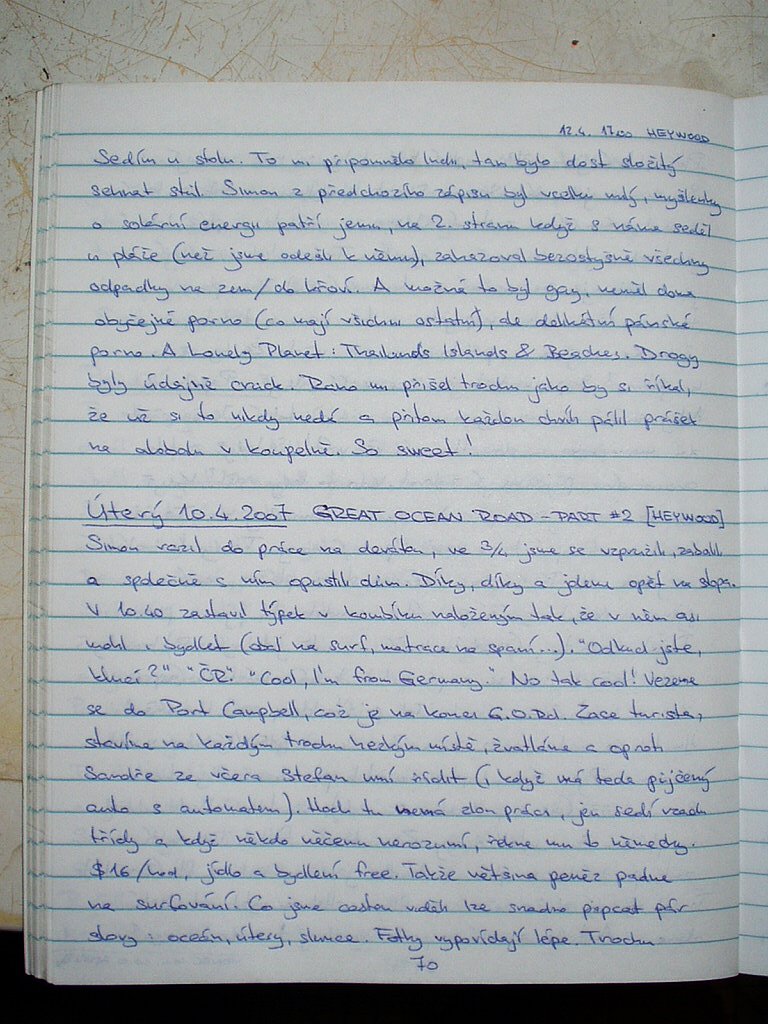 12.4. 17.00 HEYWOOD
Sedím u stolu. To mi připomnělo Indii, tam bylo dost složitý
sehnat stůl. Simon z předchozího zápisu byl vcelku milý, myšlenky
o solární energii patří jemu, na 2. stranu když s náma seděl
u pláže (než jsme odešli k němu), zahazoval bezostyšně všechny
odpadky na zem/do křoví. A možná to byl gay, neměl doma
obyčejné porno (co mají všichni ostatní), ale delikátní pánské
porno. A Lonely Planet: Thailands Islands & Beaches. Drogy
byly údajně crack. Ráno mi přišel trochu jako by si říkal,
že už si to nikdy nedá a přitom každou chvíli pálil prášek
na alobalu v koupelně. So sweet!
Úterý 10.4.2007 GREAT OCEAN ROAD - PART #2 [HEYWOOD]
Simon razil do práce na devátou, ve 3/4 jsme se vzpružili, zabalili
a společně s ním opustili dům. Díky, díky a jdeme opět na stopa.
V 10.40 zastavil týpek v kombíku naloženým tak, že v něm asi
mohl i bydlet (obal na surf, matrace na spaní...). "Odkud jste,
kluci?" "ČR". "Cool, I'm from Germany." No tak cool! Vezeme
se do Port Campbell, což je na konci G.O.Rd. Zase turista,
stavíme na každým trochu hezkým místě, žvatláme a oproti
Sandře ze včera Stefan umí řídit (i když má teda půjčený
auto s automatem). Hoch tu nemá zlou práci, jen sedí vzadu
třídy a když někdo něčemu nerozumí, řekne mu to německy.
$16/hod, jídlo a bydlení free. Takže většina peněz padne
na surfování. Co jsme cestou viděli lze snadno přepsat pár
slovy: oceán, útesy, slunce. Fotky vypovídají lépe. Trochu
70